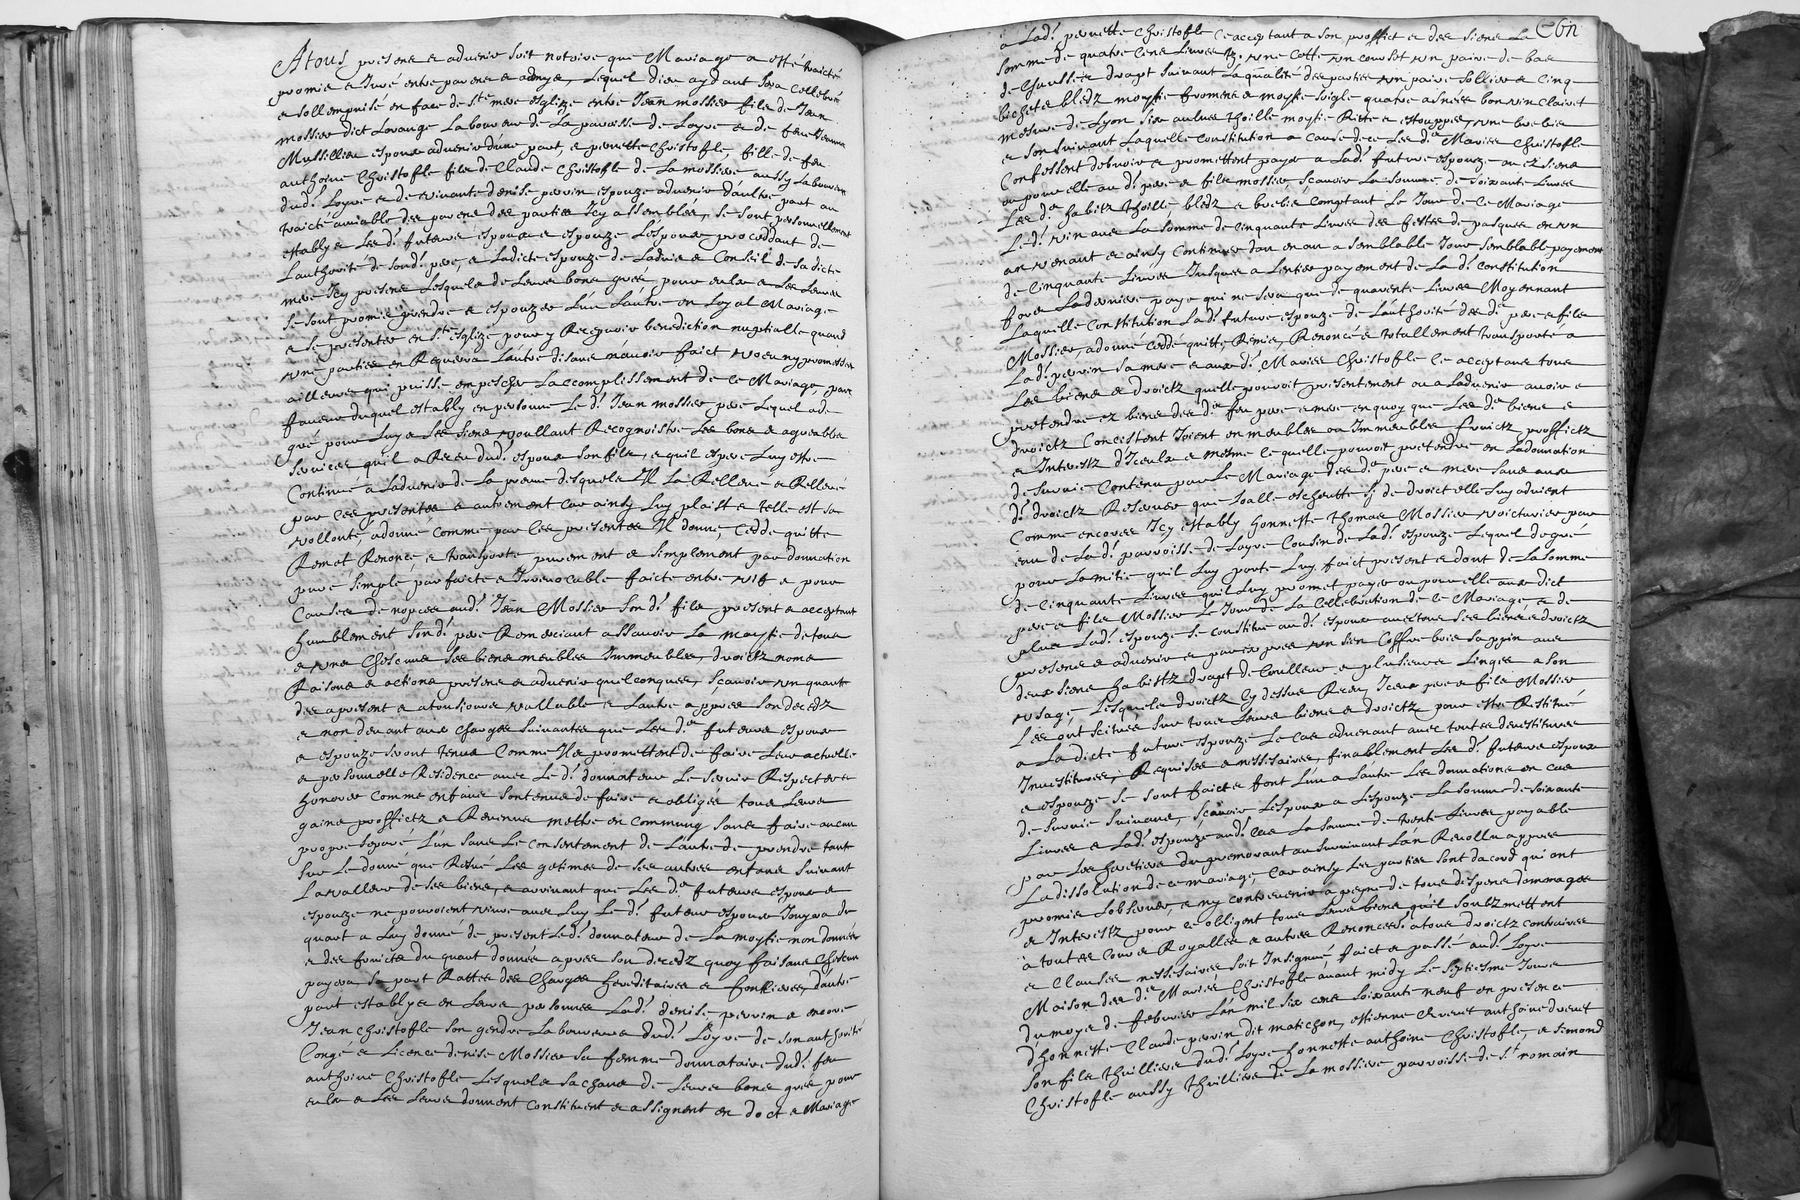 Atous presens et advenir soit notoire que Mariage a esté traicté
promis et Juré entre parens et amys, lequel dieu aydant sera cellebré
et sollempnisé en face de Ste mere esglize entre Jean mossier fils de Jean
mossier dict Lorange Laboureur de la parroisse de Loyre et de feue
Mussillieu espoux advenir d'une part, et pernette Christofle, fille de feu
anthoine Christofle fils de Claude Christofle de La mossiere aussy Laboureur
dud. Loyre et de vivante denise perrin espouze advenir d'aultre part au
traicté amiable des parens des parties Icy assemblés, se sont personnellement
establys Les d. futeurs espoux et espouze L'espoux proceddant de
L'authorité de sond. pere, et Ladicte espouze de Ladvis et Conseil de sa dicte
mere Icy presens Lesquels de Leurs bons grés, pour eulx et Les Leurs
Se sont promis prendre et espouzer L'un L'autre en Loyal Mariage
et se presenter en Ste esglize pour y Recepvoir benediction nuptialle quand
une parties en Requerra L'autre disant n'avoir faict voeu ny promesses
ailleurs qui puisse empescher L'accomplissement de ce Mariage, par
faveur duquel estably en personne Le d. Jean mossier pere Lequel de
gré pour Luy et Les siens voullant Recognoistre Les bons et agreables
services quil a Receu dud. espoux son fils, et quil espere Luy estre
Continué a Ladvenir de La preuve desquels Il La Relleve et Relleve
par Ces presentes et autrement Car ainsy Luy plaist et telle est sa
vollonté, a donné comme par Ces presentes Il donne, Cedde quitte
Remet Renonce, et transporte purement et simplement par donnation
pure simple parfaicte et Irrevocable faicte entre vifs et pour
Causes de nopces aud. Jean Mossier Son d. fils present et acceptant
humblement Sond. pere Remerciant assavoir La moytie de tous
et uns Chescuns Ses biens meubles Immeubles, droictz noms
Raisons et actions presens et advenir quelconques, Scavoir un quart
des apresent et atousjours vallable et L'autre appres son decedz
et non devant aux charges suivantes que Les ds futeurs espoux
et espouze seront tenus Comme Ils promettent de faire Leur actuelle
et personnelle Residence avec Led. donnateur Le Servir Respecter et
honorer comme enfans sont tenus de faire et obligés tous Leurs
gains profficts et Revenus mettre en commung, Sans faire aucun
propre separé L'un Sans Le consentement de L'autre de prendre tant
Sur Le donné que Reservé Les getimes de ses autres enfans Suivant
La valleur de ses biens, et arrivant que Les ds futeurs espoux et
espouze ne pourroient vivre avec Luy Le d. futeur espoux Jouyra du
quart a Luy donné de present Led. donnateur de La moytie non donnée
et des fruicts du quart donnés appres son decedz quoy faisant Chescun
payera Sa part Rattes des Charges hereditaires et fonssieres, d'autre
part establys en Leurs personnes Lad. denise perrin et encore
Jean Christofle son gendre Laboureur dud. Loyre de son authorité
Congé et Licence denise Mossier Sa femme donnataire dud. feu
anthoine Christofle Lesquels Sachans de Leurs bons grés pour
eulx et Les Leurs donnent Constituent et assignent en doct et Mariage
a Lad. pernette Christofle Ce acceptant a son proffict et des siens La
somme de quatre Cens Livres tz. une Cotte un courset un paire de bas
de Chausses drapt suivant La qualité des parties un paire sollier et Cinq
bichets bledz moytie froment et moytie soigle quatre asnées bon vin clairet
mesure de Lyon six aulnes thoille moytie Ritte et estouppes, une brebis
et son suivant Laquelle Constitution a cause de ce Les ds Mariés Christofle
Confessent debvoir et promettent payer a Lad. future espouze ou ez siens
ou pour elle au d. pere et fils mossier, Scavoir La somme de soixante Livres
Les ds habitz thoille bledz et brebis Comptant Le Jour de ce Mariage
Le d. vin avec La somme de Cinquante Livres des festes de pasques en un
an venant et ainsy Continuer d'an en an a semblable Jour semblable payement
de Cinquante Livres Jusques a L'entier payement de La d. Constitution
fors La derniere paye qui ne sera que de quarente Livres Moyennant
Laquelle Constitution Lad. future espouze de L'authorité des ds pere et fils
Mossier, a donné Cedde quitte, Remis, Renoncé et totallement transporté a
Lad. perrin Sa mere et aux d. Mariés Christofle Ce acceptans tous
Les biens et droictz quelle pouvoit presentement ou a Ladvenir avoir et
pretendre ez biens des ds feu pere et mere en quoy que Les ds biens et
droictz Concistent Soient en meubles ou Immeubles fruictz proffictz
et Interestz d'Iceulx et mesme Ce quelle pouvoit pretendre en La donnation
de survie Contenu par Le Mariage des ds pere et mere Sauf aux
d. droictz Reserver que Loalle escheutte sy de droict elle Luy advient
Comme encores Icy estably honneste thomas Mossier voicturier par
eau de La d. parroisse de Loyre Cousin de Lad. espouze Lequel de gré
pour Lamitie quil Luy porte Luy faict present et dont de La somme
de Cinquante Livres quil Luy promet payer ou pour elle aux dict
pere et fils Mossier Le Jour de La Cellebration de ce Mariage et de
plus Lad. espouze se Constitue au d. espoux avec tous Ses biens et droictz
presens et advenir et par expres un sien Coffre bois sappin avec
deux siens habitz drapt de Coulleur et plusieurs Linges a son
usage, Lesquels droictz Cy dessus Receu Iceux pere et fils Mossier
Les ont scitués Sur tous Leurs biens et droictz pour estre Restitué
a La dicte future espouze Le Cas advenant avec toutes devestitures
Investitures, Requises et nessessaires, finablement Les d. futeurs espoux
et espouze Se sont faict et font L'un a L'autre Les donnations en Cas
de survie Suivant, Scavoir L'espoux a L'espouze La somme de soixante
Livres et Lad. espouze aud. Cas La somme de trente Livres payable
par Les heretiers du premorant au Survivant L'an Revollu appres
La dissolution de ce mariage, Car ainsy Les parties sont dacord qui ont
promis L'observer, et ny contrevenir a peyne de tous despens dommages
et Interestz pour ce obligent tous Leurs biens quil soubzmettent
a toutes Cours Royalles et autres Renonceés atous droictz contraires
et Clauses nessessaires, soit Insignué, faict et passé aud. Loyre
Maison des ds Mariés Christofle avant midy Le septiesme Jour
du moys de febvrier L'an mil six cens Soixante neuf en presence
d'honneste Claude perrin dit matichon, estienne anthoine
Son fils thuilliers dud. Loyre honneste anthoine Christofle, et simond
Christofle aussy thuilliers de La mossiere parroisse de St romain